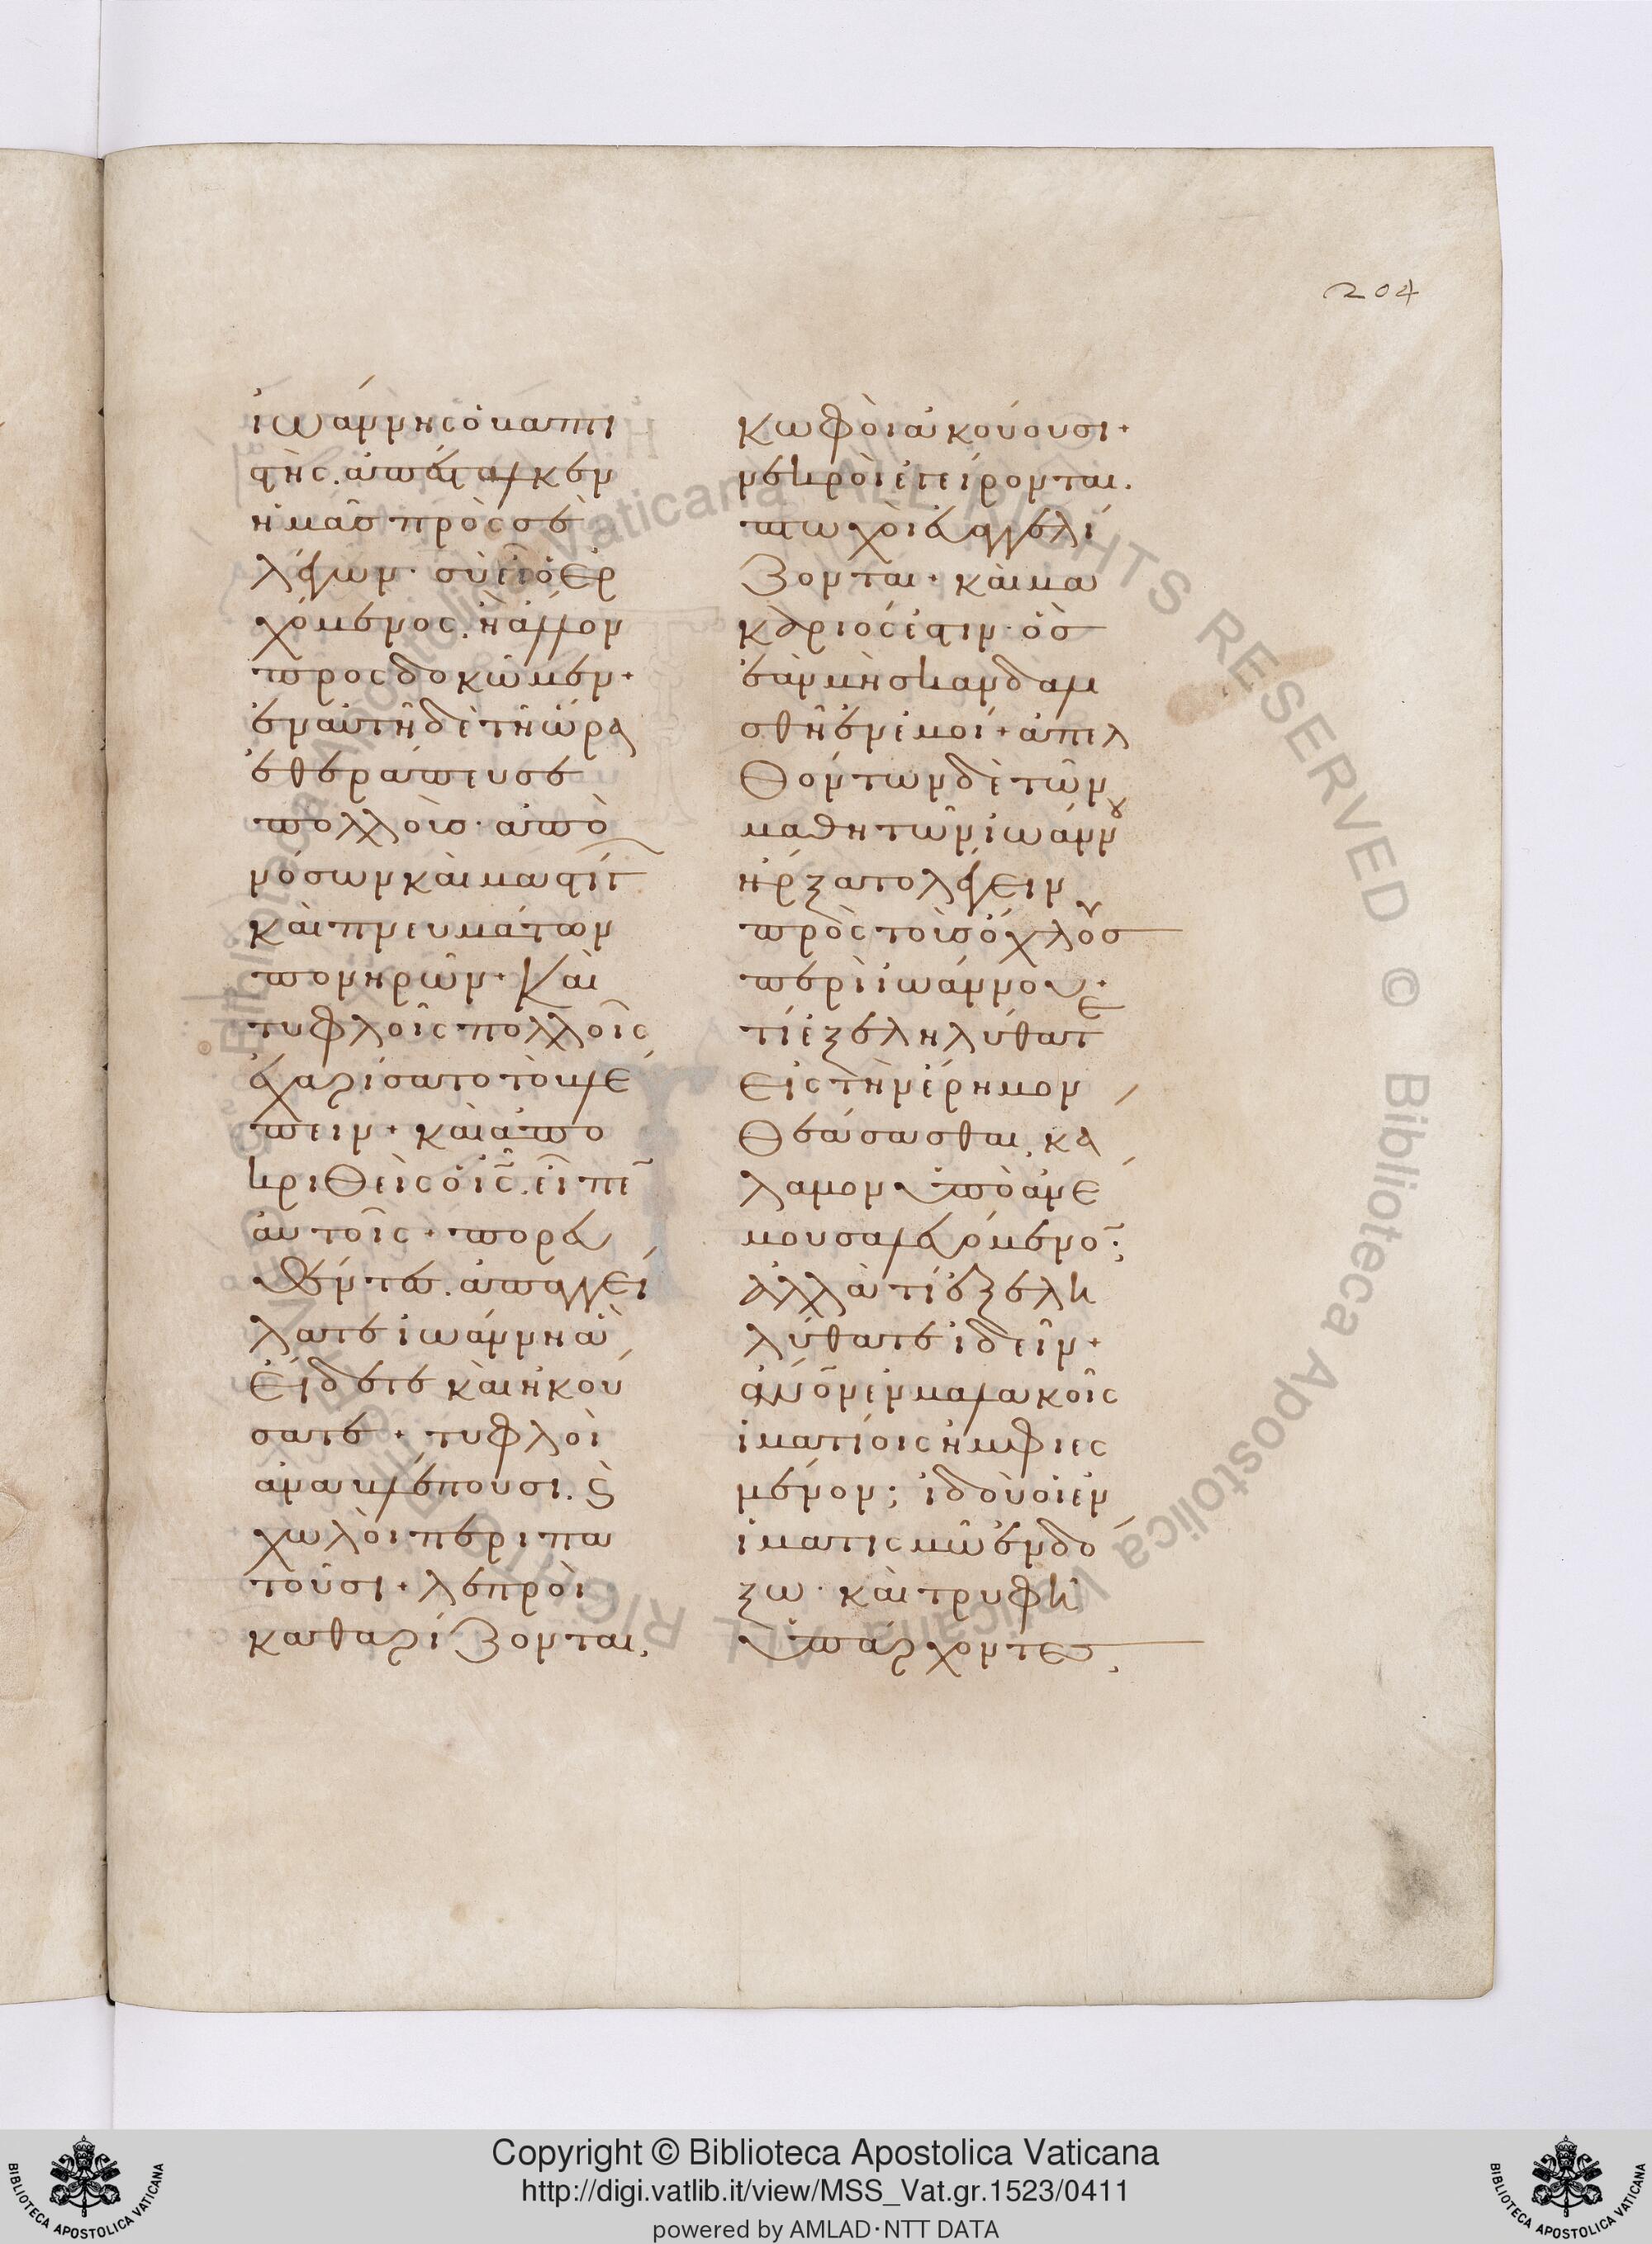 204
ἰωάννης ὁ βαπτι
στὴς. ἀπέσταλκεν
ἡμᾶσ πρὸς σὲ
λέγων· σὺ εἶ ὁ ἐρ
χόμενος. ἢ ἄλλον
προςδοκῶμεν+
ἐν αὐτῆ δὲ τῆ ὥρα
ἐθεράπευσε
πολλοὺσ· ἀπὸ
νόσων καὶ μαστίγ
καὶ πνευμάτων
πονηρῶν+ καὶ
τυφλοῖς πολλοῖς
ἐχαρίσατο τὸ βλέ
πειν+ καὶ ἀπο
κριθεὶς ὁ ις̅. εἶπε̅
αὐτοῖς+ πορευ
θέντες. ἀπαγγεί
λατε ἰωάννη ἃ
εἴδετε καὶ ἠκού
σατε+ τυφλοὶ
ἀναβλέπουσι. ϗ
χωλοὶ περιπα
τοῦσι+ λεπροὶ
καθαρίζονται,
κωφοὶ ἀκούουσι+
νεκροὶ ἐγείρονται.
πτωχοὶ εὐαγγελί
ζονται+ καὶ μα
κάριός ἐστιν· ὃσ
ἐὰν μὴ σκανδαλι
σθῆ ἐν ἐμοί+ ἀπελ
θόντων δὲ τῶν
μαθητῶν ἰωάννου
ἤρξατο λέγειν
πρὸς τοὺσ ὄχλουσ
περὶ ἰωάννου+
τί ἐξεληλύθατε
εἰς τὴν ἔρημον
θεάσασθαι, κά
λαμον ὑπὸ ἀνέ
μου σαλευόμενο̅;
ἀλλὰ τί ἐξελη
λύθατε ἰδεῖν+
ἀνο̅ν ἐν μαλακοῖς
ἱματίοις ἠμφιες
μένον; ἰδοὺ οἱ ἐν
ἱματισμῶ ἐνδό
ξω· καὶ τρυφῆ
ὑπάρχοντες,
Copyright © Biblioteca Apostolica Vaticana
http://digi.vatlib.it/view/MSS_Vat.gr.1523/0411
powered by AMLAD·NTT DATA
BIBLIOTECA APOSTOLICA VATICANA
BIBLIOTECA APOSTOLICA VATICANA